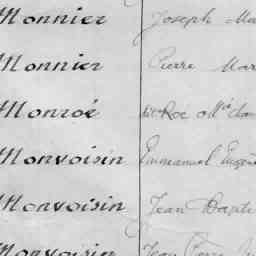 Monnier Joseph Ma
Monnier Pierre Mar
Monroé
Monvoisin Emmanuel Eugène
Monvoisin Jean Bapti
Monvoisin Jean Pierre